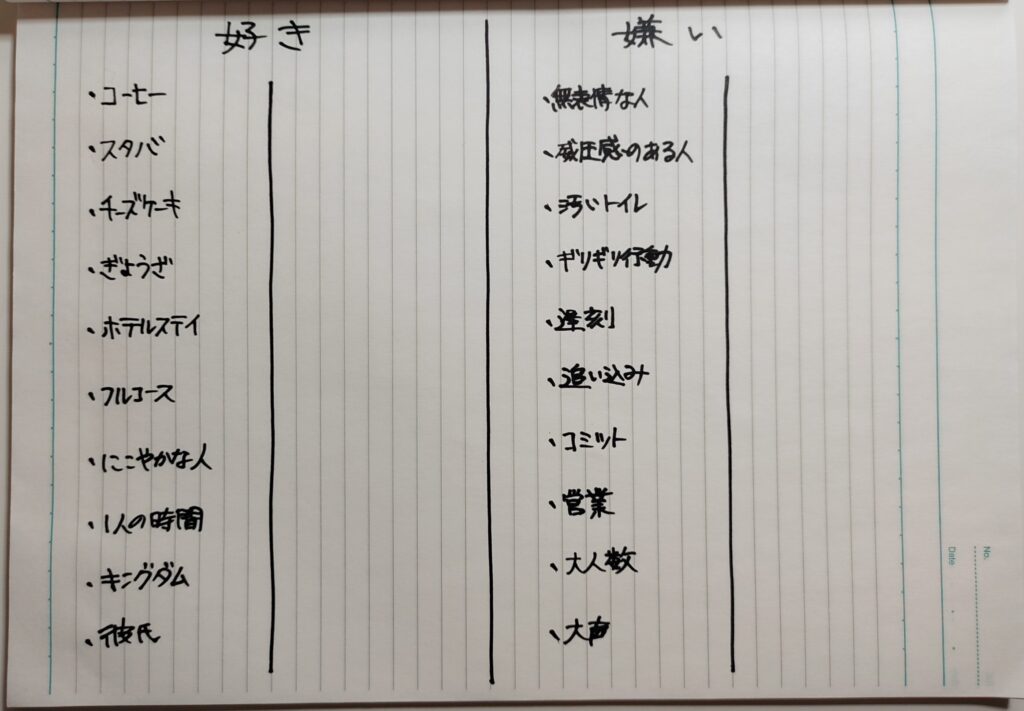 好き
・コーヒー
・スタバ
・チーズケーキ
・ぎょうざ
・ホテルステイ
・フルコース
・にこやかな人
・1人の時間
・キングダム
・彼氏
嫌い
・無表情な人
・威圧感のある人
・汚いトイレ
・ギリギリ行動
・遅刻
・追い込み
・コミット
・営業
・大人数
・大声
No.
Date